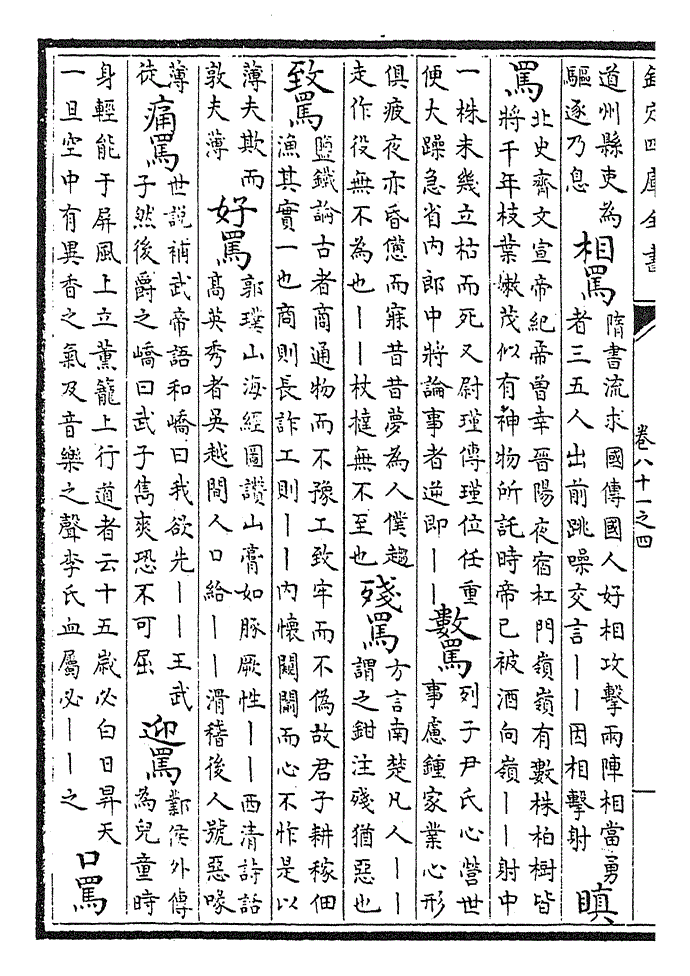 欽定四庫全書
卷八十一之四
道州縣吏為
驅逐乃息
相罵
隋書流求國傳國人好相攻擊兩陣相當勇
者三五人出前跳噪交言丨丨因相擊射
瞋
罵
北史齊文宣帝紀帝曽幸晉陽夜宿杠門嶺嶺有數株柏樹皆
將千年枝葉嫩茂似有神物所託時帝已被酒向嶺丨丨射中
一株未幾立枯而死又尉瑾傳瑾位任重
便大躁急省内郎中將論事者逆即丨丨
數罵
列子尹氏心營世
事慮鍾家業心形
俱疲夜亦昏憊而寐昔昔夢為人僕趨
走作役無不為也丨丨杖撻無不至也
殘罵
方言南楚凡人丨丨
謂之鉗注殘猶惡也
致罵
鹽鐵論古者商通物而不豫工致牢而不偽故君子耕稼佃
漁其實一也商則長詐工則丨丨内懷闚闟而心不怍是以
薄夫欺而
敦夫薄
好罵
郭璞山海經圖讚山膏如豚厥性丨丨西清詩話
髙英秀者吳越間人口給丨丨滑稽後人號惡喙
薄
徒
痛罵
世說補武帝語和嶠曰我欲先丨丨王武
子然後爵之嶠曰武子雋爽恐不可屈
迎罵
鄴侯外傳
為兒童時
身輕能于屏風上立薰籠上行道者云十五歲必白日昇天
一旦空中有異香之氣及音樂之聲李氏血屬必丨丨之
口罵